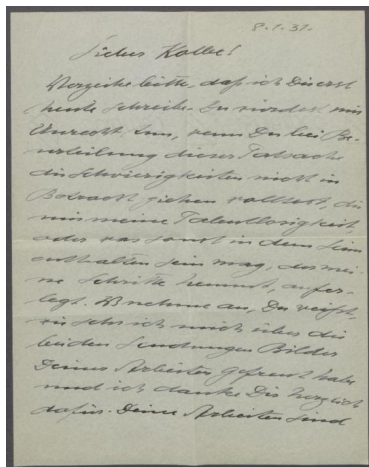 8.1.31.
Lieber Kolbe!
Verzeihe bitte, daß ich Dir erst
heute schreibe. Du würdest mir
Unrecht tun, wenn Du bei Be-
urteilung dieser Tatsache
die Schwierigkeiten nicht in
Betracht ziehen wolltest, die
mir meine Talentlosigkeit,
oder was sonst in dem Sein
enthalten sein mag, das mei-
ne Schritte hemmt, aufer-
legt. Ich nehme an, Du weißt,
wie sehr ich mich über die
beiden Sendungen Bilder
Deiner Arbeiten gefreut habe
und ich danke Dir herzlich
dafür. Deine Arbeiten sind